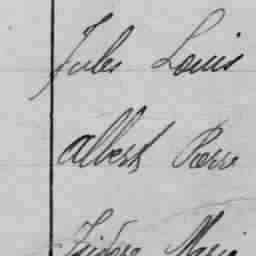 Jules Louis
Albert Pierre
Isidore Marie